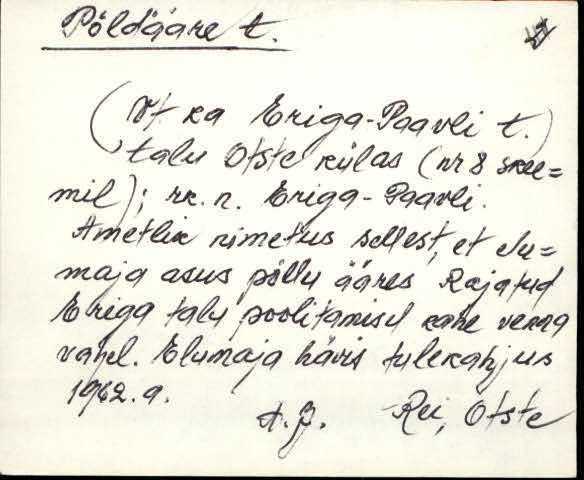 Põldääre t.
(Vt ka Eriga-Paavli t.)
talu Otste külas (nr 8 skee=
mil); rk. n. Eriga-Paavli.
Ametlik nimetus sellest, et elu=
maja asus põllu ääres. Rajatud
Eriga talu poolitamisel kahe venna
vahel. Elumaja hävis tulekahjus
1962. a.
A. J. Rei, Otste